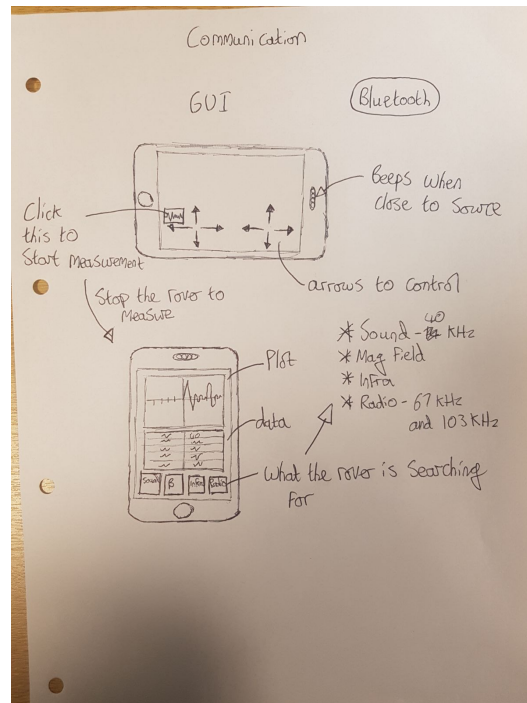 Communication
GUI
Bluetooth
Beeps when
close to Source
Click
this to
Start Measurement
arrows to control
Stop the rover to
Measure
40
* Sound - KHz
* Mag Field
* Infra
* Radio - 67 KHz
and 103 KHz
Plot
data
40
What the rover is Searching
for
Sound
B
Infra
Radio